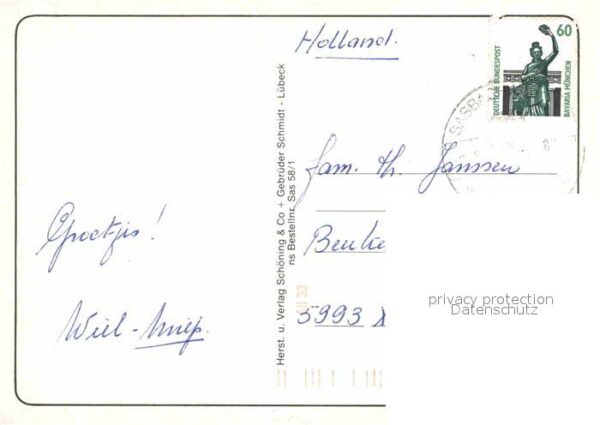 Holland.
60
DEUTSCHE BUNDESPOST
BAVARIA MÜNCHEN
SASBA
Herst. u. Verlag Schöning & Co + Gebrüder Schmidt - Lübeck
ns Bestellnr. Sas 58/1
Fam. th. Janssen
Groetjes!
5993
Wiel - Miep.
privacy protection
Datenschutz